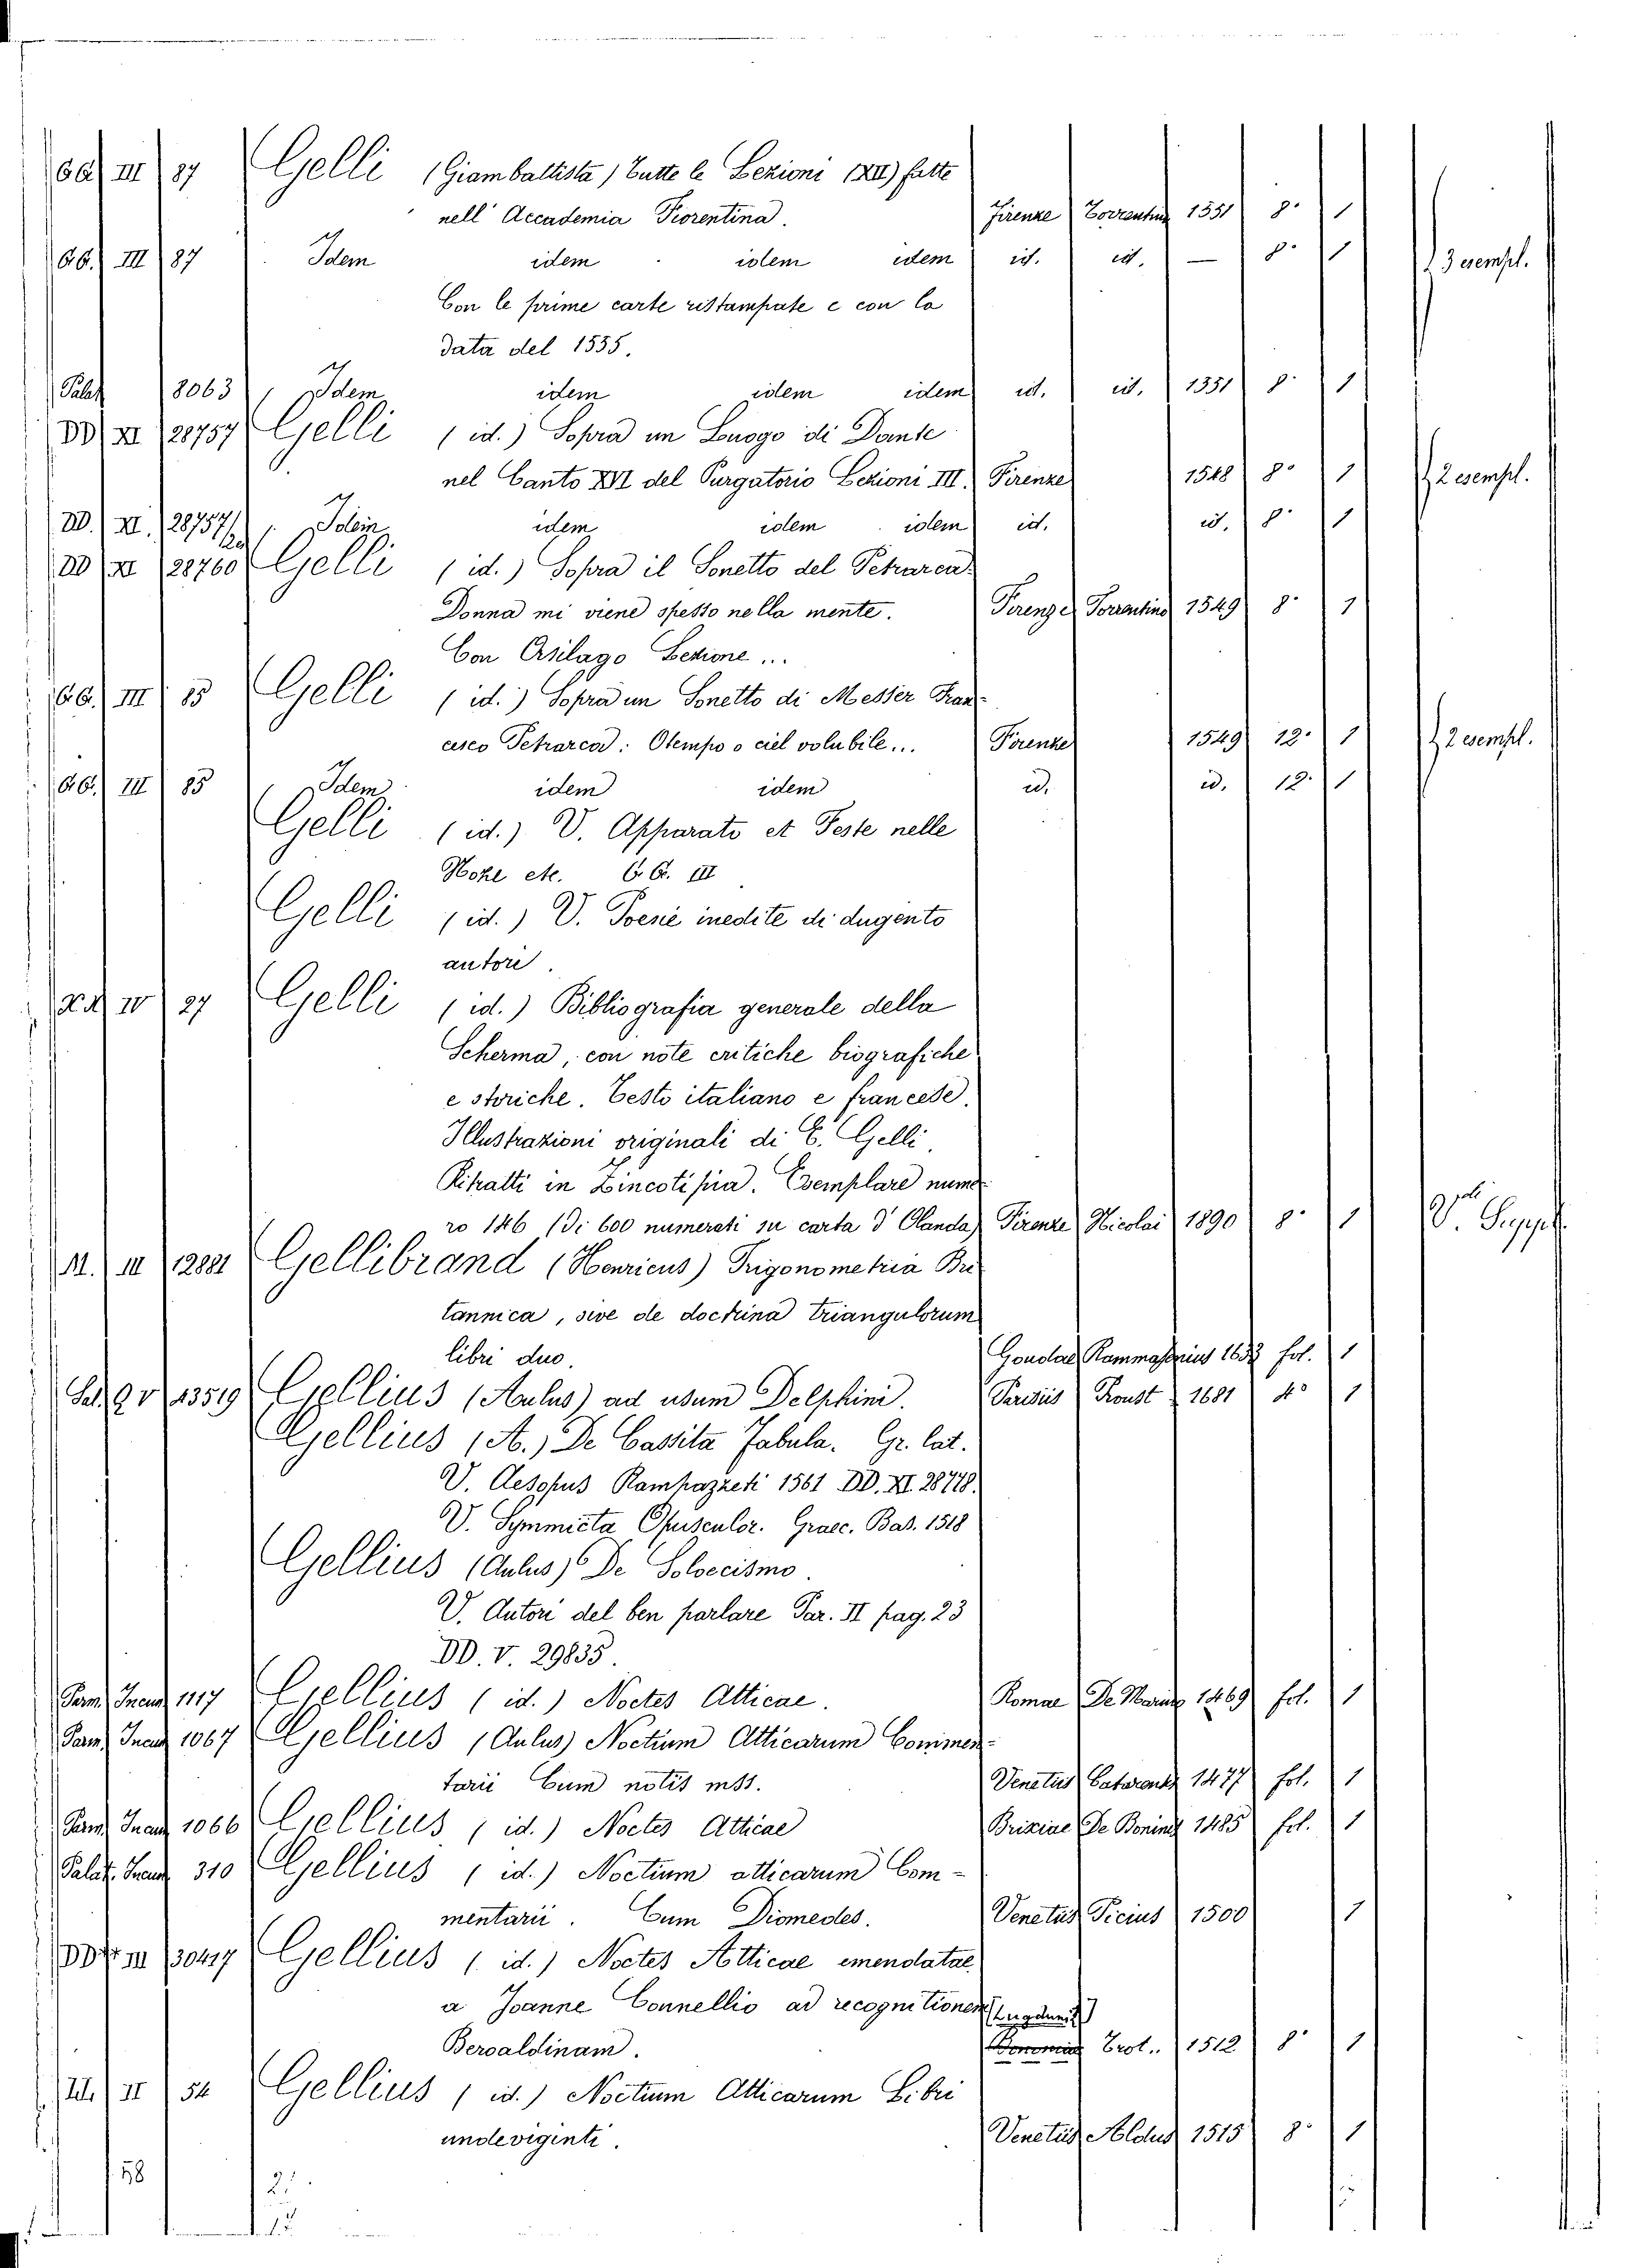 GG. III 87 Gelli (Giambattista) Tutte le Lezioni (XII) fatte
nell' Accademia Fiorentina. Firenze Torrentino 1551 8° 1
GG. III 87 Idem idem idem idem id. id. — 8° 1 3 esempl.
Con le prime carte ristampate e con la
data del 1555.
Palat 8063 Idem idem idem idem id. id. 1551 8° 1
DD XI 28757 Gelli (id.) Sopra un Luogo di Dante
nel Canto XVI del Purgatorio Lezioni III. Firenze 1548 8° 1 2 esempl.
DD. XI. 28757 Idem idem idem idem id. id. 8° 1
DD XI 28760 Gelli (id.) Sopra il Sonetto del Petrarca
Donna mi viene spesso nella mente. Firenze Torrentino 1549 8° 1
Con Lezione ...
GG. III 85 Gelli (id.) Sopra un Sonetto di Messer Fran-
cesco Petrarca: O tempo o ciel volubile... Firenze 1549 12° 1 2 esempl.
GG. III 85 Idem idem idem id. id. 12° 1
Gelli (id.) V. Apparato et Feste nelle
Noze etc. GG. III
Gelli (id.) V. Poesie inedite di dugento
autori.
IV 27 Gelli (id.) Bibliografia generale della
Scherma, con note critiche biografiche
e storiche. Testo italiano e francese.
Illustrazioni originali di E. Gelli,
Ritratti in Zincotipia. Esemplare nume-
ro 146 (Di 600 numerati su carta d' Olanda) Firenze Nicolai 1890 8° 1 V. Suppl.
III 12881 Gellibrand (Henricus) Trigonometria Bri-
tannica, sive de doctrina triangulorum
libri duo. Goudae Rammasenius 1633 fol. 1
Sal. Q V 13519 Gellius (Aulus) ad usum Delphini. Parisiis Proust 1681 4° 1
Gellius (A.) De Cassita Fabula. Gr. lat.
V. Aesopus Rampazzeti 1561 DD. XI. 28778.
V. Symmicta Opusculor. Graec. Bas. 1518
Gellius (Aulus) De Soloecismo.
V. Autori del ben parlare Par. II pag. 23
DD. V. 29835.
Parm. Incun. 1117 Gellius (id.) Noctes Atticae. Romae De Maximis 1469 fol. 1
Parm. Incun. 1067 Gellius (Aulus) Noctium Atticarum Commen-
tarii Cum notis mss. Venetiis Catarensis 1477 fol. 1
Parm. Incun. 1066 Gellius (id.) Noctes Atticae Brixiae De Boninis 1485 fol. 1
Palat. Incun. 310 Gellius (id.) Noctium atticarum Com-
mentarii. Cum Diomedes. Venetiis Picius 1500 1
III 30417 Gellius (id.) Noctes Atticae emendatae
a Joanne Connellio ad recognitionem Lugduni
Beroaldinam. Bononiae Trot.. 1512 8° 1
II 54 Gellius (id.) Noctium Atticarum Libri
undeviginti. Venetiis Aldus 1515 8° 1
58 2.